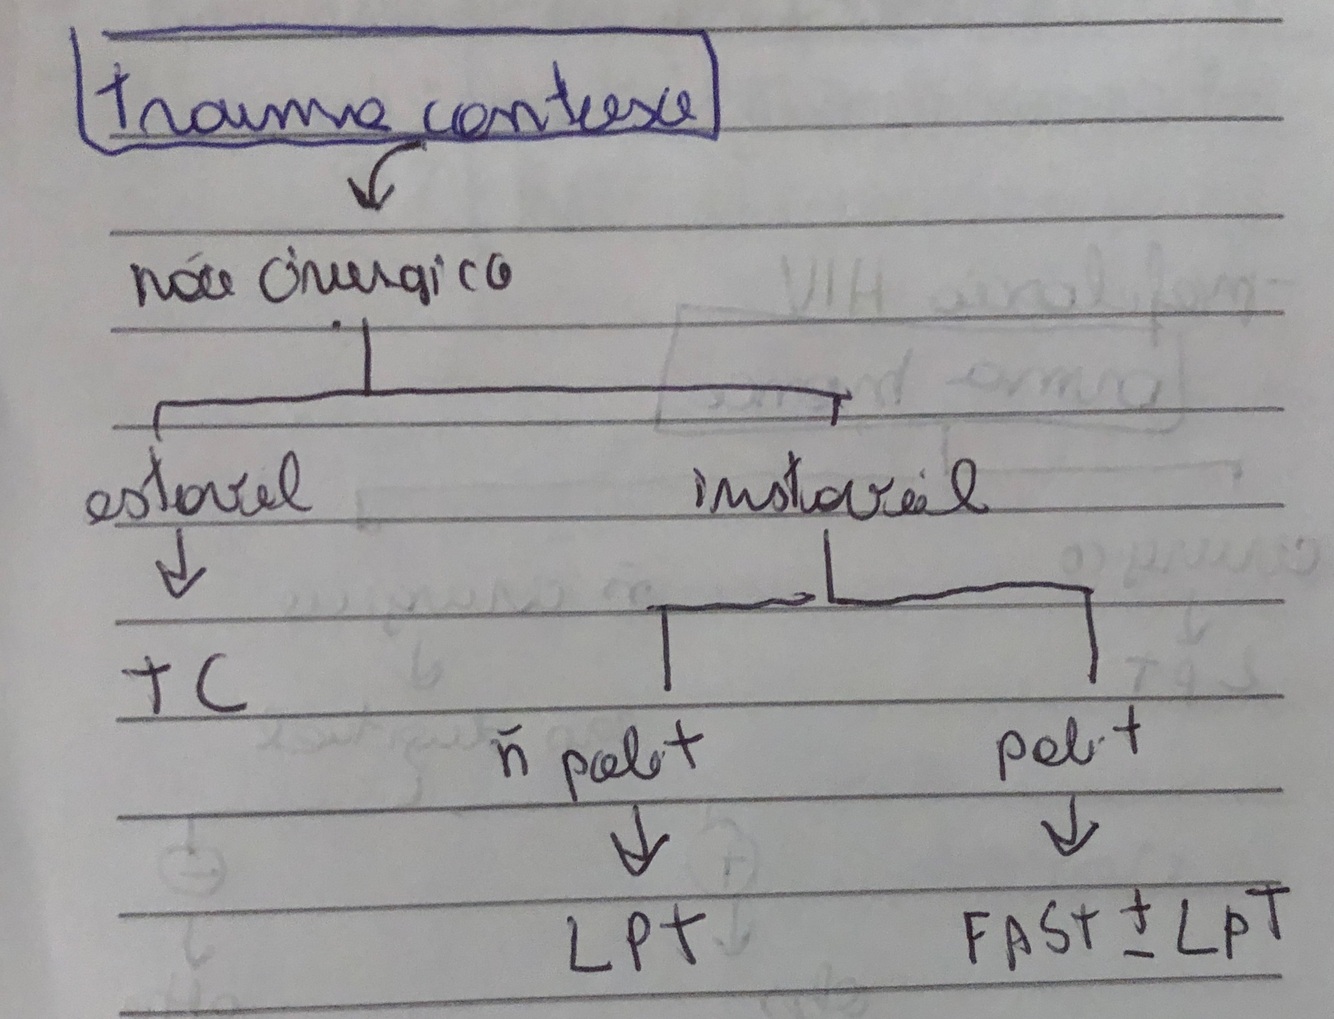 trauma contuso
não cirurgico
estavel instavél
TC
ñ polit polit
LPT FAST ± LPT